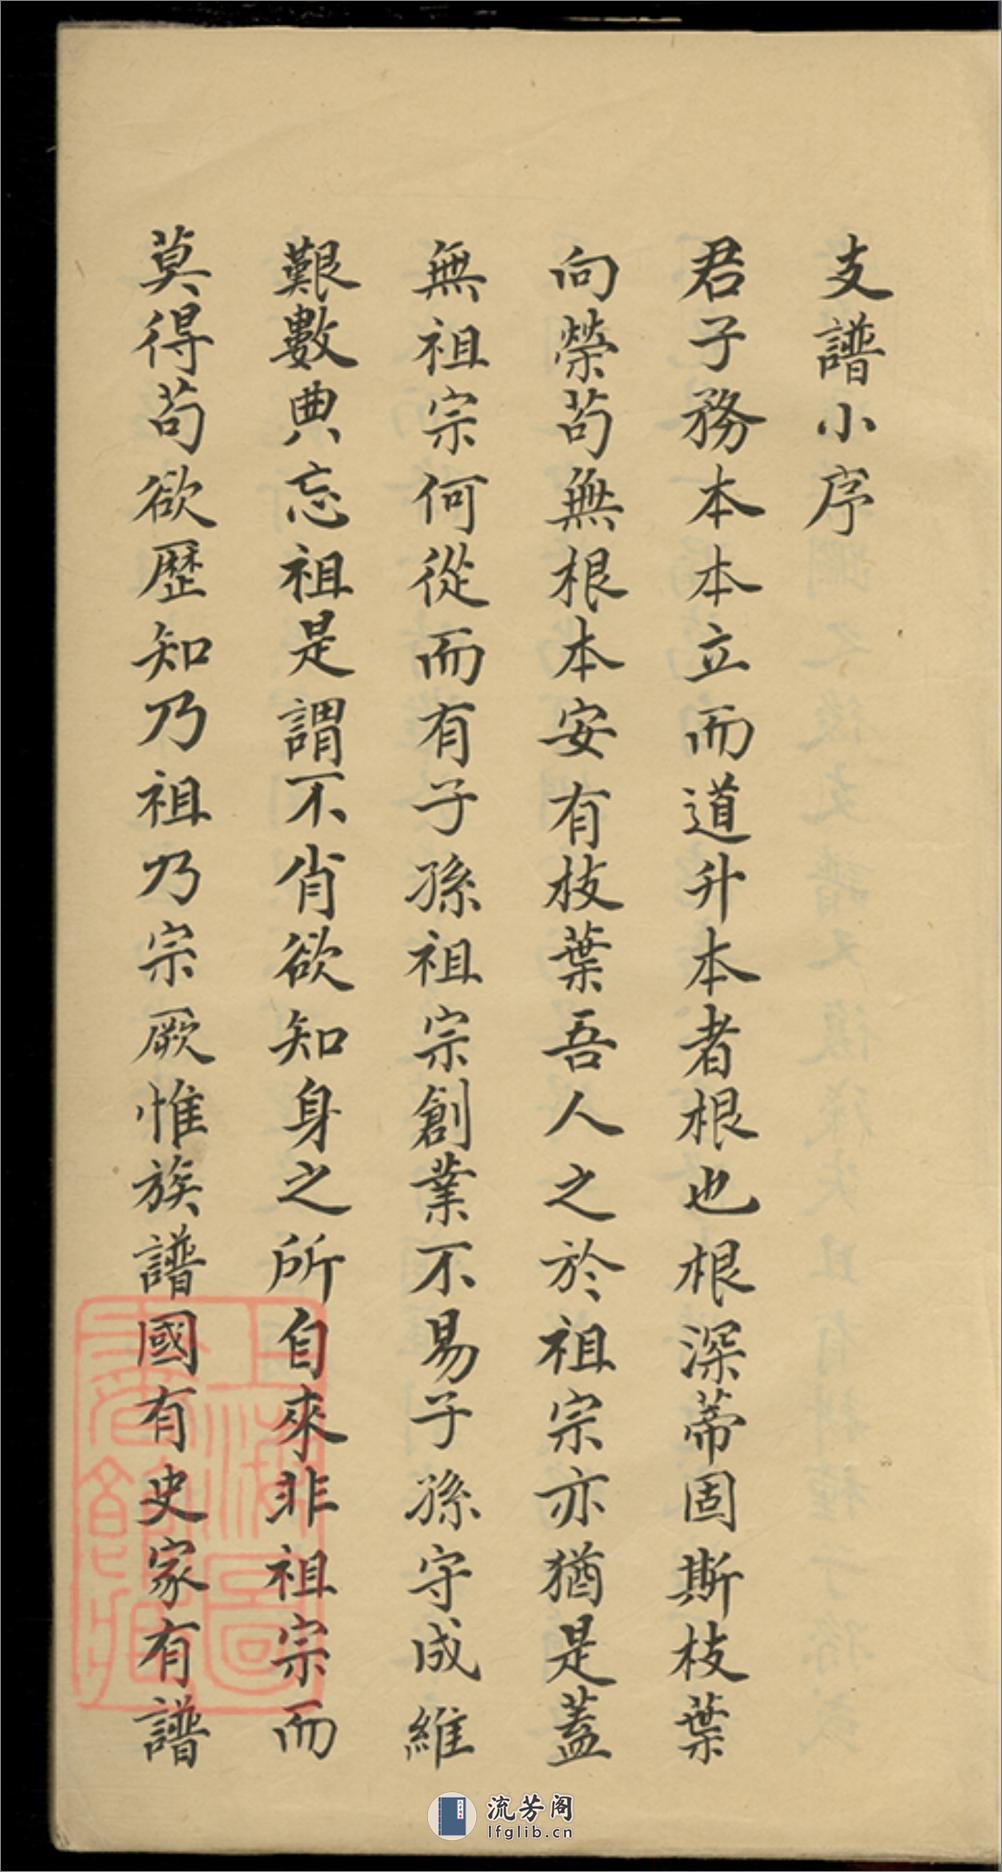 支譜小序
君子務本本立而道升本者根也根深蒂固斯枝葉
向榮苟無根本安有枝葉吾人之於祖宗亦猶是蓋
無祖宗何從而有子孫祖宗創業不易子孫守成維
艱數典忘祖是謂不肖欲知身之所自來非祖宗而
莫得苟欲歷知乃祖乃宗厥惟族譜國有史家有譜
上海圖書館藏
流芳阁
lfglib.cn